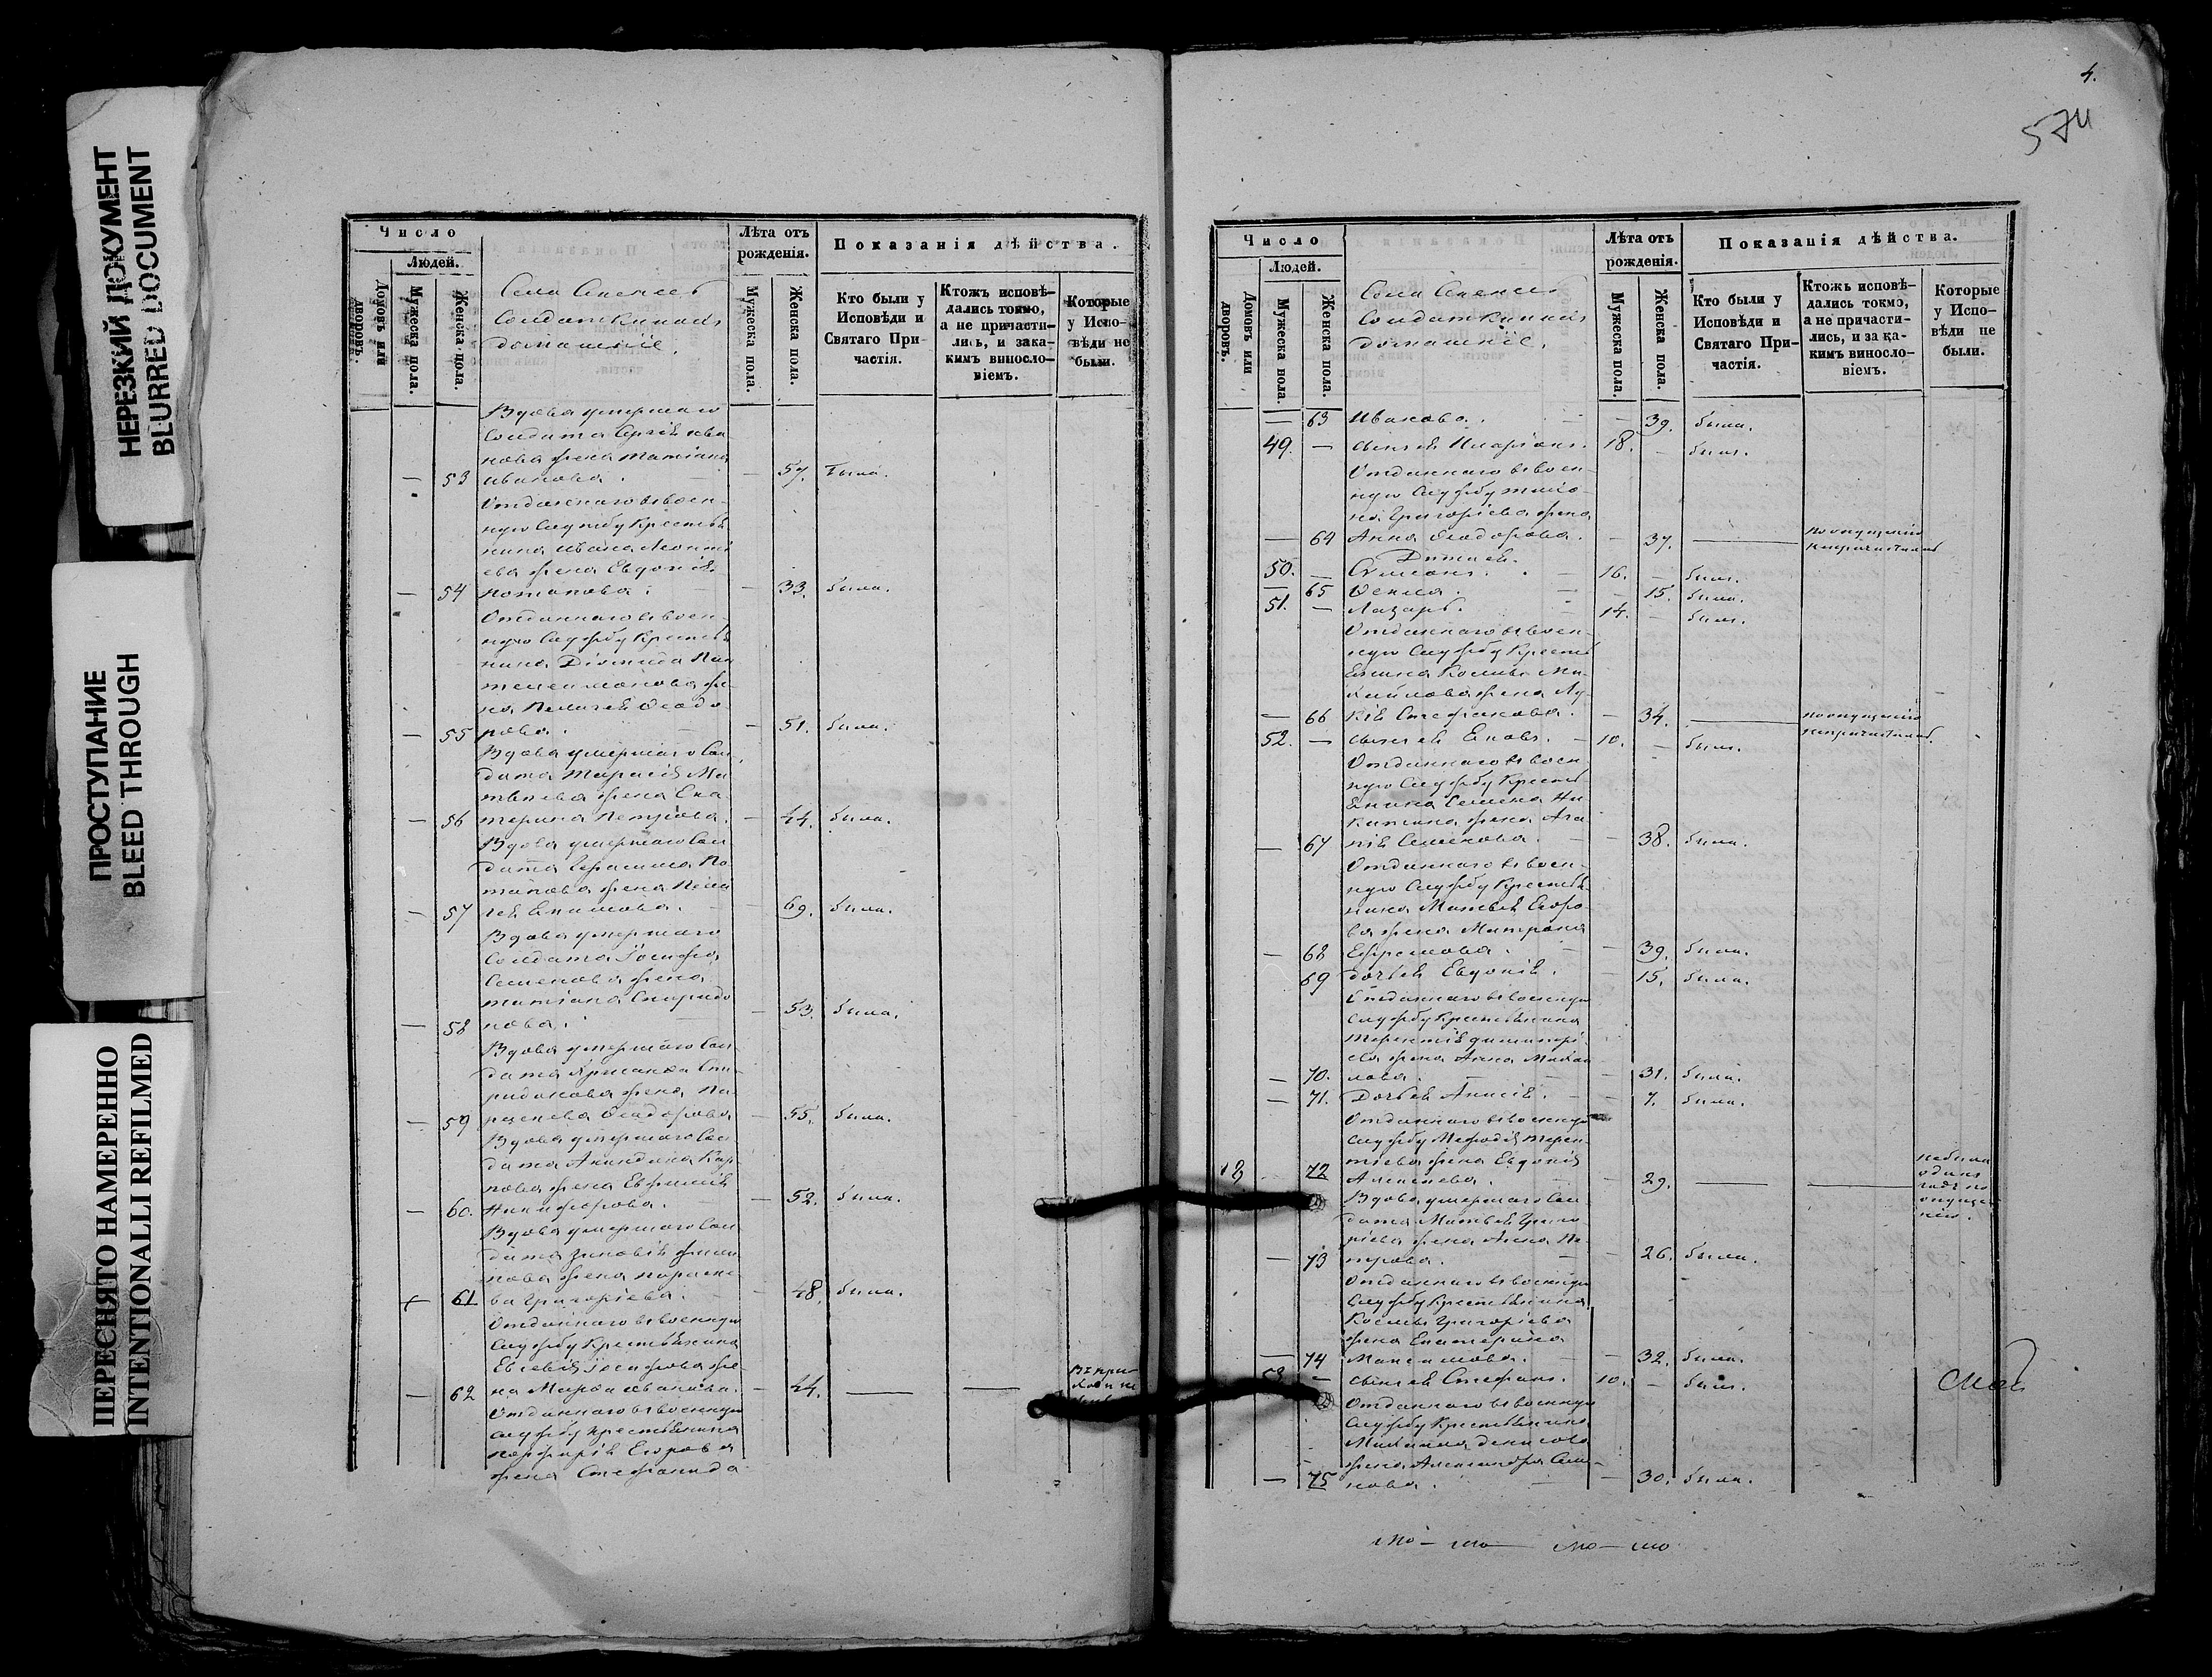 НЕРЕЗКИЙ ДОКУМЕНТ
BLURRED DOCUMENT
ПРОСТУПАНИЕ
BLEED THROUGH
ПЕРЕСНЯТО НАМЕРЕННО
INTENTIONALLI REFILMED
Число
Людей.
Домовъ или дворовъ.
Мужеска пола.
Женска пола.
Села
Солдаткины
домашніе.
Лѣта отъ рожденія.
Мужеска пола.
Женска пола.
Показанія дѣйства.
Кто были у Исповѣди и Святаго Причастія.
Ктожъ исповѣдались токмо, а не причастились, и закакимъ винословіемъ.
Которые у Исповѣди не были.
Вдова умершаго
Солдата Сергѣя Ива
нова жена Татіана
— 53 Иванова. — 57. была.
Отданнаго въ воен-
ную Службу Крестья
нина Ивана Леонті
ева жена Евдокія
— 54 Потапова. — 33. была.
Отданнаго въ воен-
ную Службу Крестья
нина Діомида Пан
телеимонова же-
на Пелагея Ѳеодо
— 55 рова. — 51. была.
Вдова умершаго Сол
дата Тарасія Ма
твѣева жена Ека
— 56 терина Петрова. — 44. была.
Вдова умершаго Сол
дата Герасима По
тапова жена Пела
— 57 гея Екимова. — 69. была.
Вдова умершаго
Солдата Іосифа
Семенова жена
Татіана Спиридо
— 58 нова. — 53. была.
Вдова умершаго Сол
дата Спи
ридонова жена Па
— 59 раскева Ѳеодорова — 55. была.
Вдова умершаго Сол
дата Акиндина Кар
пова жена Евфимія
— 60. Никифорова. — 52. была.
Вдова умершаго Сол
дата Зиновія Филип
пова жена Параске
61 ва Григорьева. — 48. была.
Отданнаго въ военную
Службу Крестьянина
Евсевія Іосифова же
— 62 на Марѳа Иванова. — 44. — —
Отданнаго въ военную
Службу Крестьянина
Порфирія Егорова
жена Стефанида
4.
574
Число
Людей.
Домовъ или дворовъ.
Мужеска пола.
Женска пола.
Села
Солдаткины
домашніе.
Лѣта отъ рожденія.
Мужеска пола.
Женска пола.
Показанія дѣйства.
Кто были у Исповѣди и Святаго Причастія.
Ктожъ исповѣдались токмо, а не причастились, и за какимъ винословіемъ.
Которые у Исповѣди не были.
— 63 Иванова. — 39. была.
49. — сынъ ея Иларіонъ. 18. — былъ.
Отданнаго въ воен-
ную Службу Тимо
ѳея Григорьева жена
— 64 Анна Ѳеодорова. — 37. — по опущенію
не причастилась
Дети ея.
50. — Симеонъ. 16. — былъ.
— 65 Ѳекла. — 15. была.
51. — Лазарь. 14. — былъ.
Отданнаго въ воен-
ную Службу Кресть
янина Космы Ми-
хайлова жена Лу-
— 66 кія Стефанова. — 34. — по опущенію
не причастилась.
52. — сынъ ея Іаковъ. 10. — былъ.
Отданнаго въ воен
ную Службу Кресть
янина Семена Ни
китина жена Ага
— 67 пія Семенова. — 38. была.
Отданнаго въ воен-
ную Службу Крестья
нина Матвѣя Егоро
ва жена Матрона
— 68 Ефремова. — 39. была.
69 дочь ея Евдокія. — 15. была.
Отданнаго въ военную
Службу Крестьянина
Терентія Димитрі
ева жена Анна Михаи
— 70. лова. — 31. была.
— 71. Дочь ея Анисія. — 7. была.
Отданнаго въ военную
Службу Меѳодія Терен
тіева жена Евдокія
72 Алексѣева. — 29. — — не была
одинъ
годъ по
опуще
нію.
Вдова умершаго Сол
дата Матвѣя Григо
рьева жена Анна Пе
— 73 трова. — 26. была.
Отданнаго въ военную
Службу Крестьянина
Космы Григорьева
жена Екатерина
— 74 Максимова. — 32. была.
53 — сынъ ея Стефанъ. 10. — былъ.
Отданнаго въ военную
Службу Крестьянина
Михаила Денисова
жена Александра Сем
— 75 нова. — 30. была.